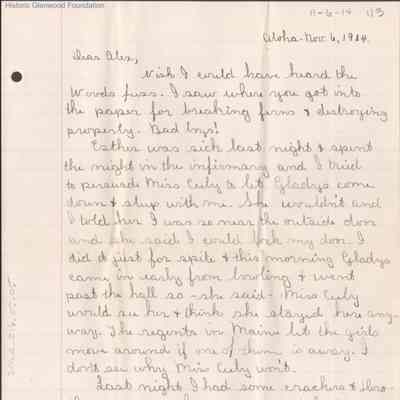 Historic Glenwood Foundation
11-6-14 1/3
Aloha-Nov. 6, 1914.
Dear Alex,
Wish I could have heard the
Woods fuss. I saw where you got into
the paper for breaking ferns & destroying
property. Bad boys!
Esther was sick last night & spent
the night in the infirmary and I tried
to persuade Miss Culy to let Gladys come
down & sleep with me. She wouldn't and
I told her I was so near the outside door
and she said I could lock my door. I
did it just for spite & this morning Gladys
came in early from bowling & went
past the hall so - she said - Miss Culy
would see her & think she stayed here any-
way. The regents in Maine let the girls
move around if one of them is away. I
don't see why Miss Culy won't.
Last night I had some crackers &